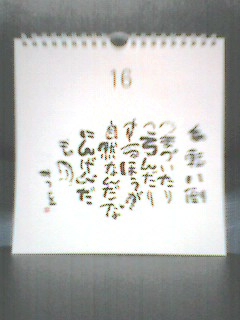 16
七転八倒
つまづいたり
ころんだり
するほうが
自然なんだな
にんげんだ
もの